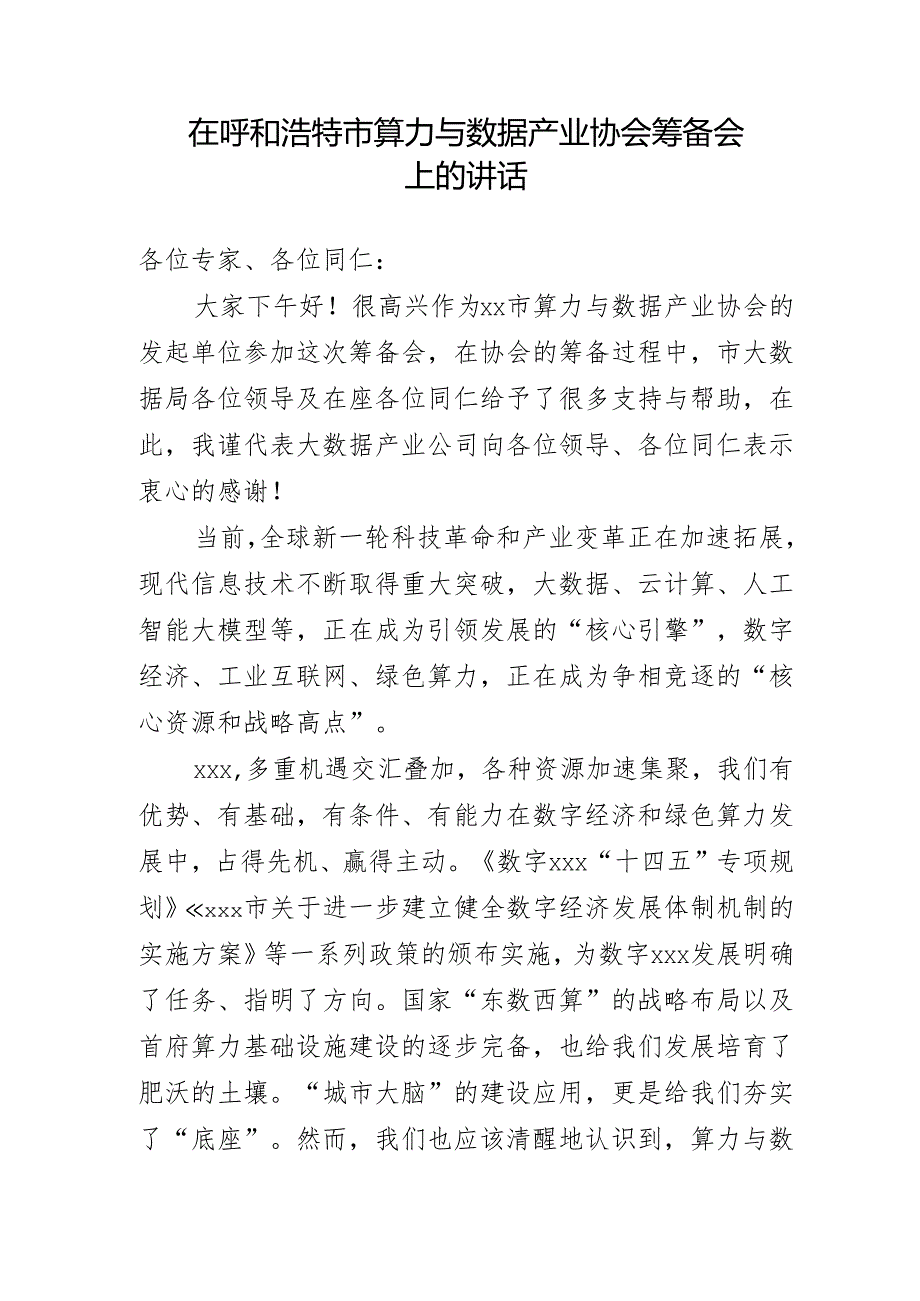 在呼和浩特市算力与数据产业协会筹备会
上的讲话
各位专家、各位同仁：
大家下午好！很高兴作为xx市算力与数据产业协会的
发起单位参加这次筹备会，在协会的筹备过程中，市大数
据局各位领导及在座各位同仁给予了很多支持与帮助，在
此，我谨代表大数据产业公司向各位领导、各位同仁表示
衷心的感谢！
当前,全球新一轮科技革命和产业变革正在加速拓展，
现代信息技术不断取得重大突破，大数据、云计算、人工
智能大模型等，正在成为引领发展的“核心引擎”，数字
经济、工业互联网、绿色算力，正在成为争相竞逐的“核
心资源和战略高点”。
xxx,多重机遇交汇叠加，各种资源加速集聚，我们有
优势、有基础，有条件、有能力在数字经济和绿色算力发
展中，占得先机、赢得主动。《数字xxx“十四五”专项规
划》≪xxx市关于进一步建立健全数字经济发展体制机制的
实施方案》等一系列政策的颁布实施，为数字xxx发展明确
了任务、指明了方向。国家“东数西算”的战略布局以及
首府算力基础设施建设的逐步完备，也给我们发展培育了
肥沃的土壤。“城市大脑”的建设应用，更是给我们夯实
了“底座”。然而，我们也应该清醒地认识到，算力与数